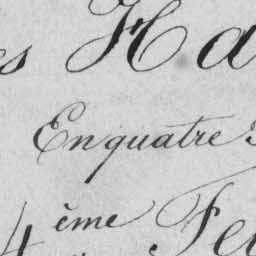 s Ha
En quatre
4ème Feu